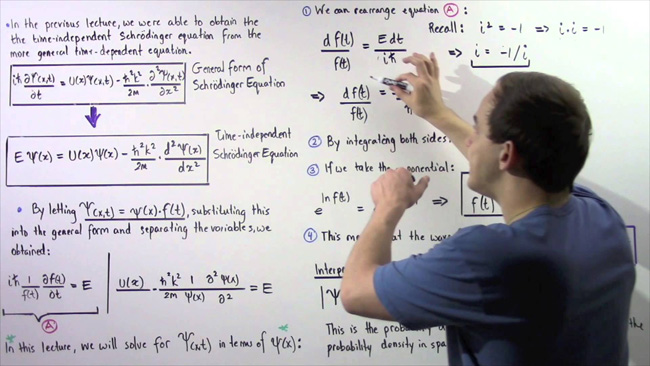 • In the previous lecture, we were able to obtain the
the time-independent Schrödinger equation from the
more general time-dependent equation.
iħ ∂Ψ(x,t)/∂t = U(x)Ψ(x,t) - ħ²k²/2m · ∂²Ψ(x,t)/∂x²
General form of
Schrödinger Equation
E Ψ(x) = U(x)Ψ(x) - ħ²k²/2m · d²Ψ(x)/dx²
Time-independent
Schrödinger Equation
• By letting Ψ(x,t) = Ψ(x)·f(t), substituting this
into the general form and separating the variables, we
obtained:
iħ 1/f(t) ∂f(t)/∂t = E
U(x) - ħ²k²/2m 1/Ψ(x) ∂²Ψ(x)/∂² = E
A
* In this lecture, we will solve for Ψ(x,t) in terms of Ψ(x): *
① We can rearrange equation A:
df(t)/f(t) = E dt/iħ
Recall: i² = -1 ⇒ i·i = -1
⇒ i = -1/i
⇒ df(t)/f(t) =
② By integrating both sides,
③ If we take the exponential:
e^ln f(t) = ⇒ f(t)
④ This the
|Ψ
This is the probability the
probability density in